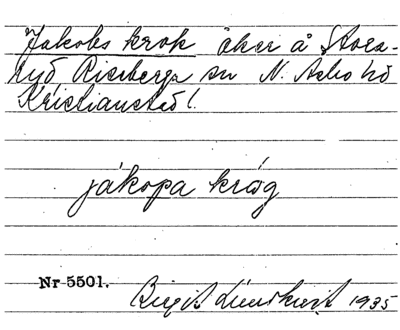 Jakobs krok åker å Stora-
ryd Riseberga sn N. Åsbo hd
Kristianstad l.
jákopa krǫg
Nr 5501.
Birgit Lundkvist 1935